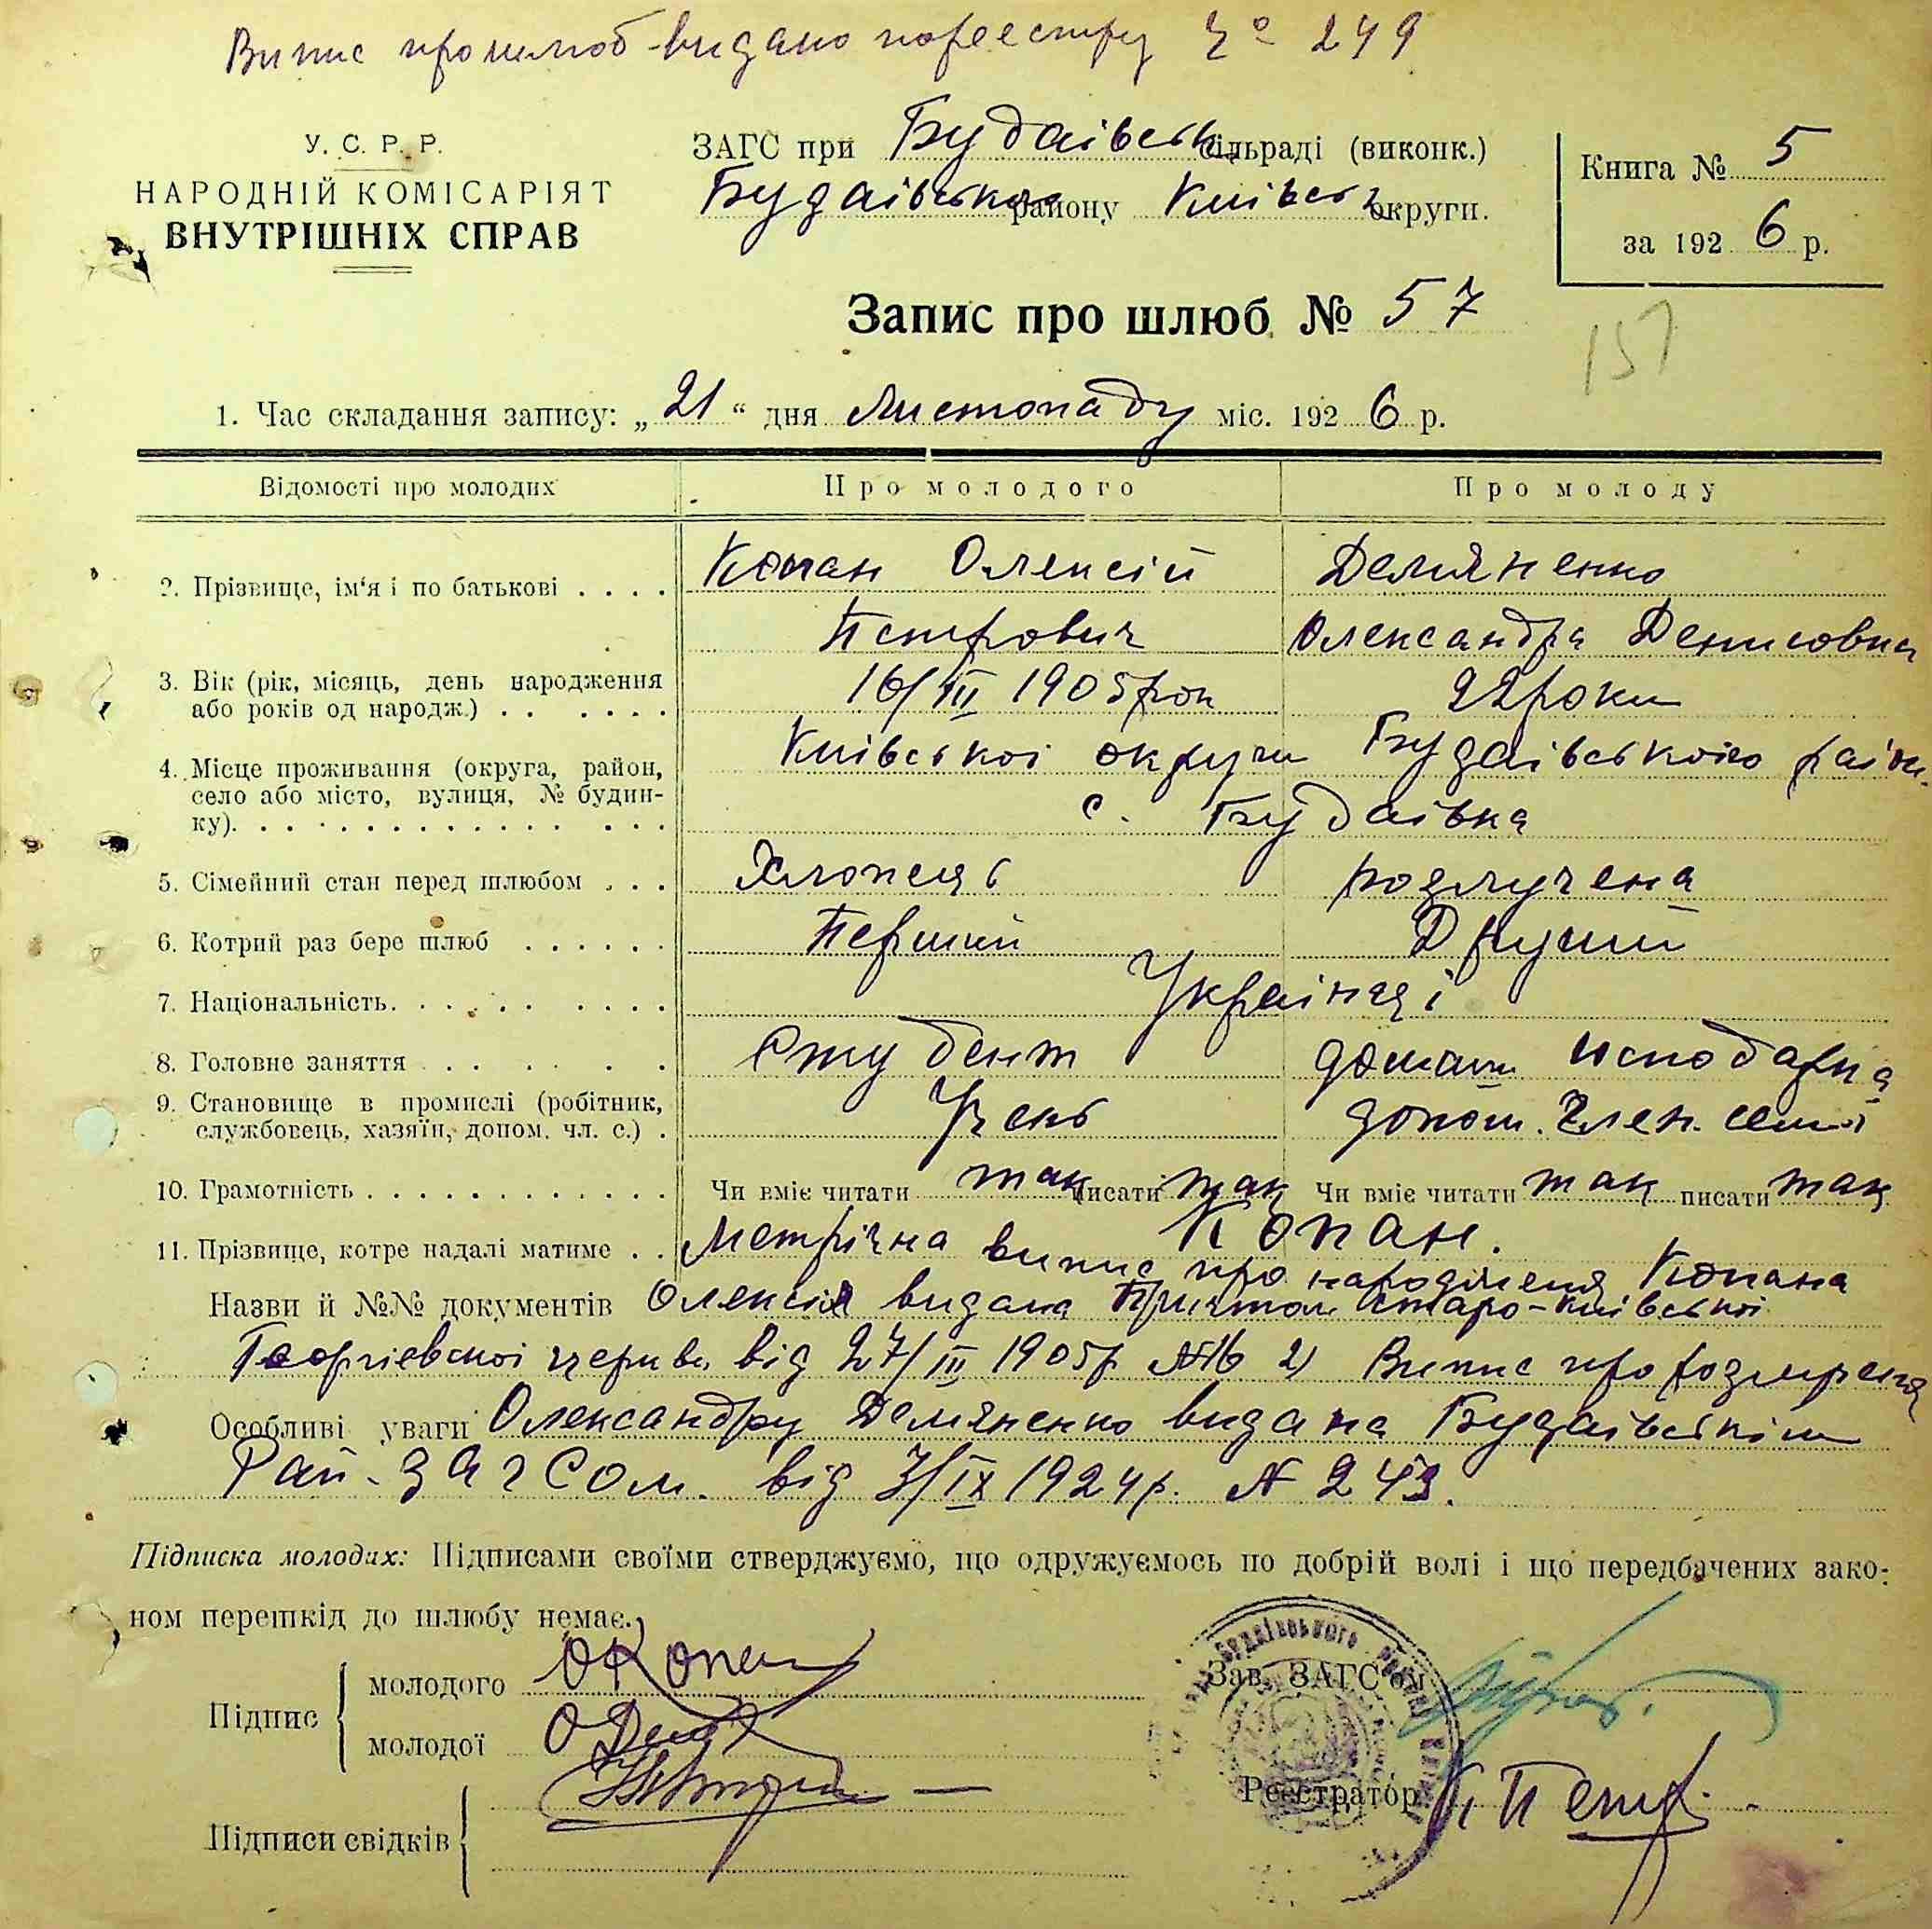 Випис про шлюб видано пореестру № 249
У. С. Р. Р.
НАРОДНІЙ КОМІСАРІЯТ
ВНУТРІШНІХ СПРАВ
ЗАГС при Будаівськ сільраді (виконк.)
Будаівського району Київськ округи.
Книга № 5
за 1926 р.
Запис про шлюб № 57
157
1. Час складання запису: „21“ дня Листопаду міс. 1926 р.
Відомості про молодих Про молодого Про молоду
2. Прізвище, ім‘я і по батькові . . . . Копан Олексій Демяненко
Петрович Олександра Денисовна
3. Вік (рік, місяць, день народження 16/III 1905 рок 22 роки
або років од народж.) . . . . . .
4. Місце проживання (округа, район, Київськоі округи Будаівського район.
село або місто, вулиця, № будин- с. Будаівка
ку). . . . . . . . . . . . . . . .
5. Сімейний стан перед шлюбом . . . Хлопець розлучена
6. Котрий раз бере шлюб . . . . . . Перший Другий
7. Національність. . . . . . . . . . Украінці
8. Головне заняття . . . . . . Студент домашн господарка
9. Становище в промислі (робітник, Учень допом. член. семі
службовець, хазяїн, допом. чл. с.) .
10. Грамотність . . . . . . . . . . . . . Чи вміє читати так писати так Чи вміє читати так писати так
11. Прізвище, котре надалі матиме . . Копан.
Метрічна випис про народженя Копана
Назви й №№ документів Олексія видана Причтом Старо-Київськоі
Георгієвскоі церкви від 27/III 1905р №16 2) Випис про розлученя
Особливі уваги Олександру Демяненко видана Будаівським
Рай-ЗАГСом. від 3/IX 1924р. № 243.
Підписка молодих: Підписами своїми стверджуємо, що одружуємось по добрій волі і що передбачених зако-
ном перешкід до шлюбу немає.
Підпис молодого ОКопан
молодої ОДем
Підписи свідків
Зав. ЗАГС'ом
Реєстратор К Петр